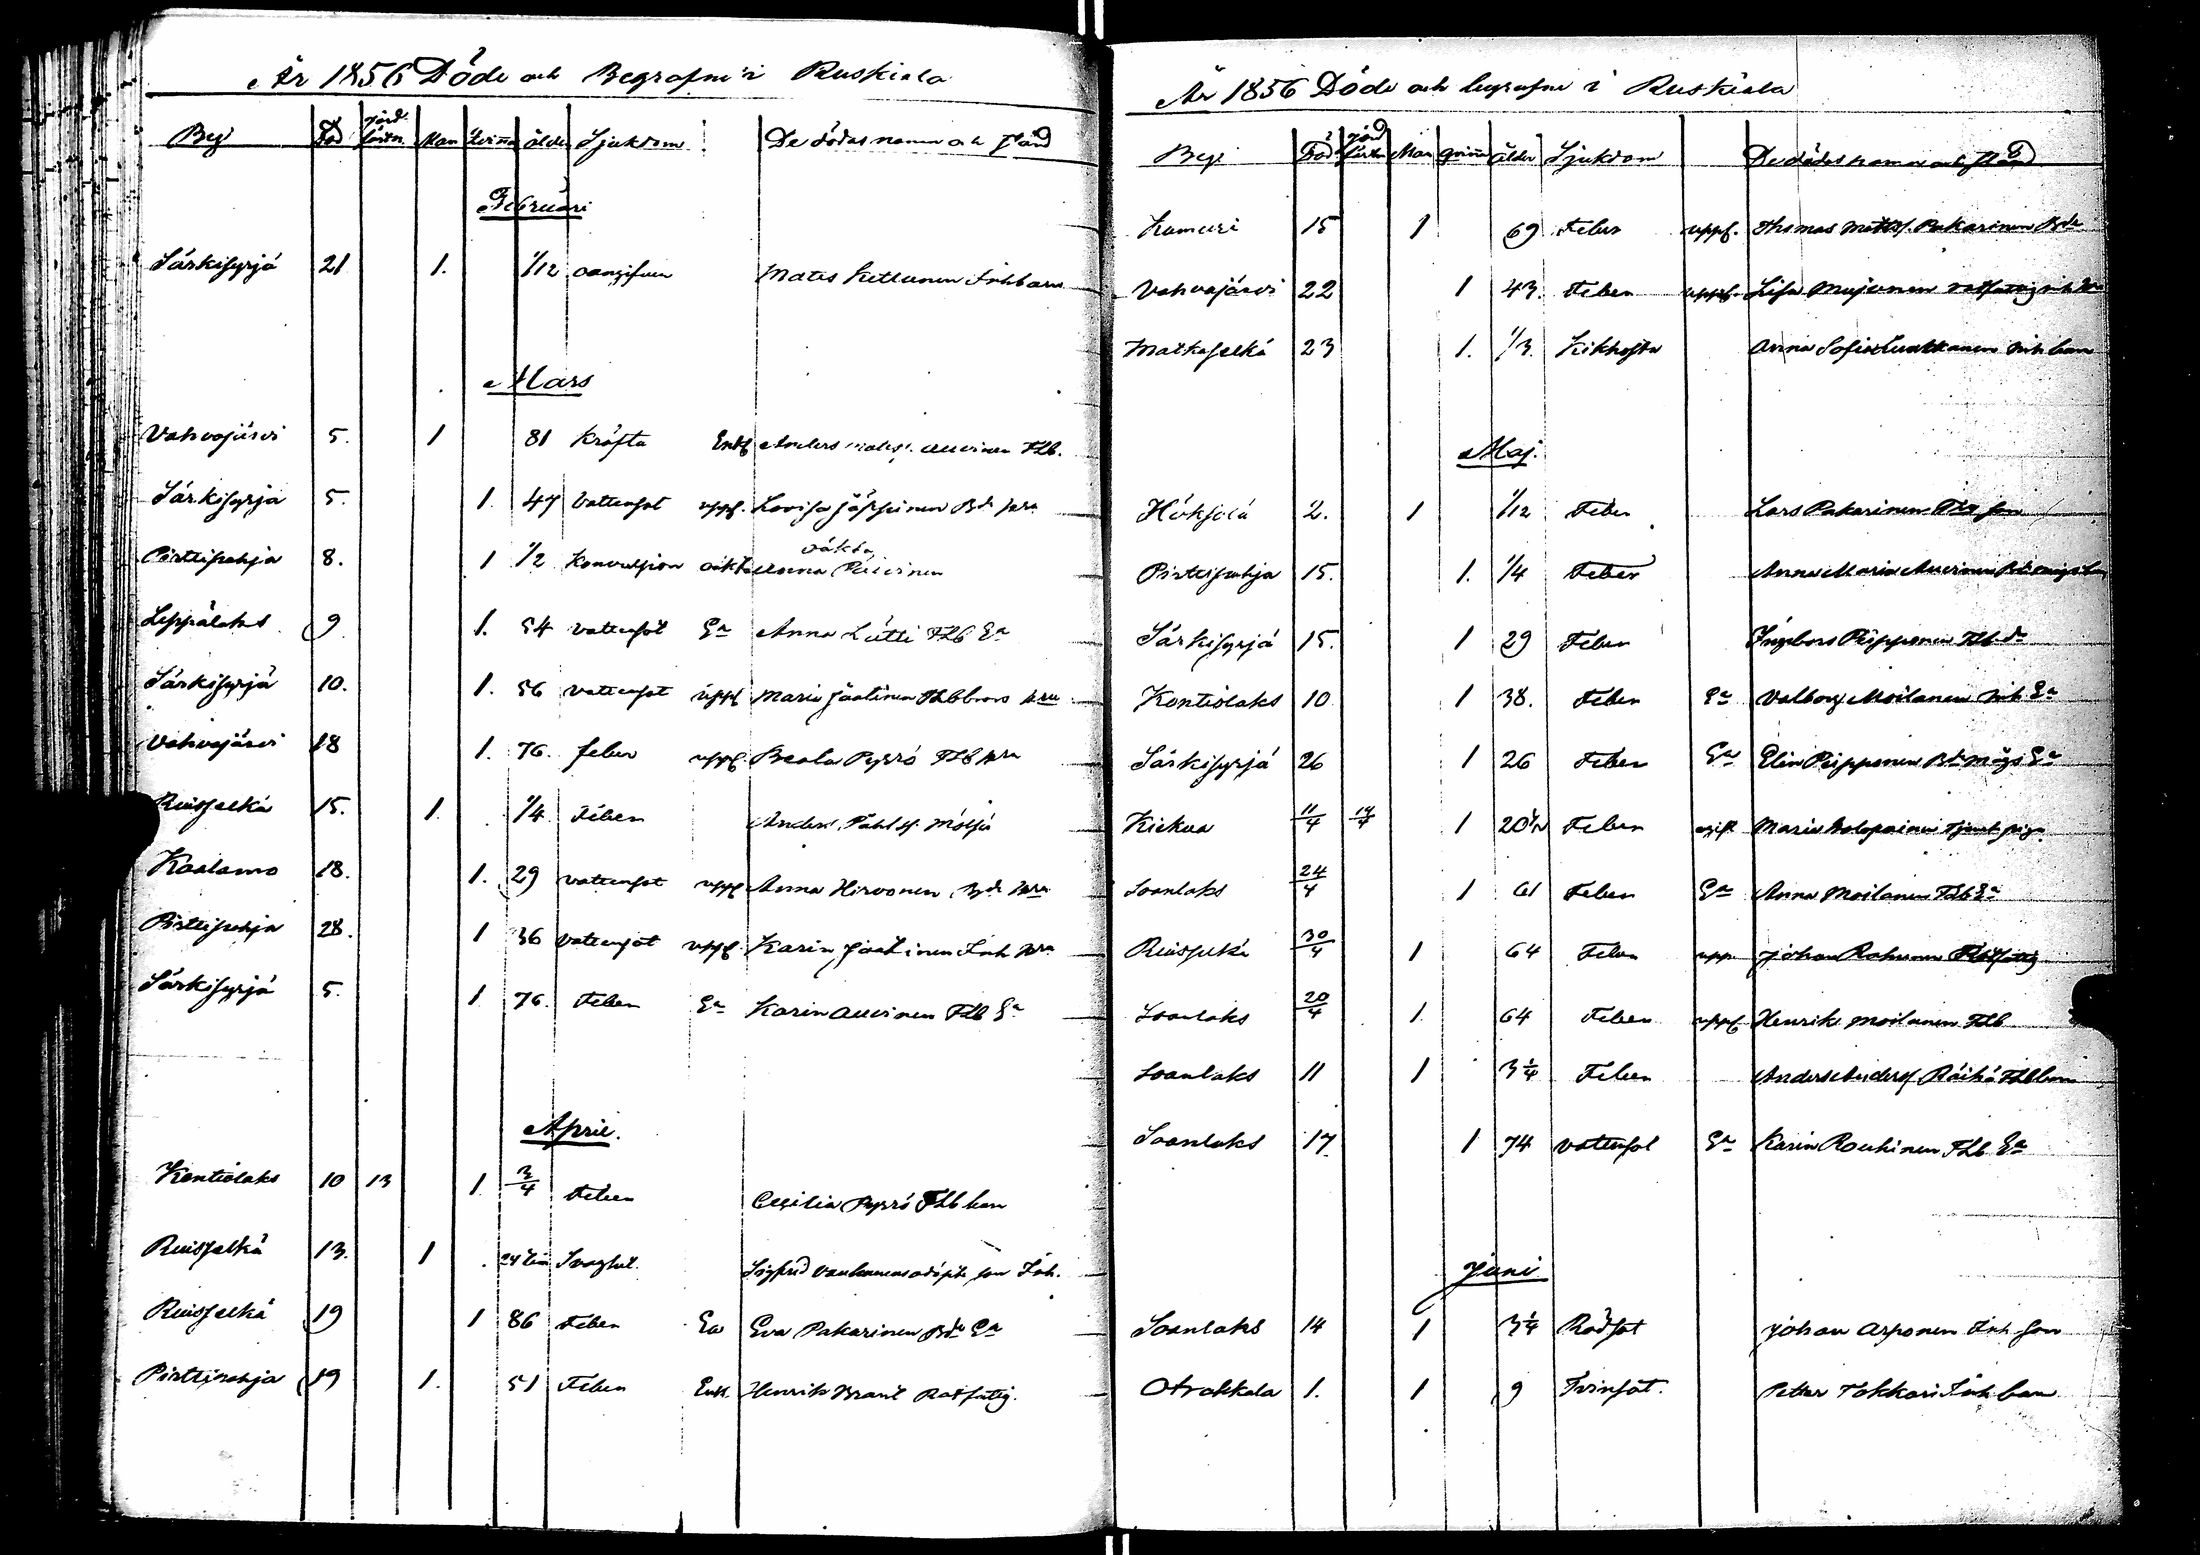 År 1856 Döde och Begrafne i Ruskiala
By Död Jord fästn. Man Qvinna ålder Sjukdom De dödas namn och stånd
Februari
Särkisyrjä 21 1. 1/12 oangifven Mats Kettunen Inh barn
Mars
Vahvajärvi 5. 1 81 kräfta Enkl Anders Auvinen FLb.
Särkisyrjä 5. 1. 47 Vattensot uppg. Lovisa Jäppinen Bde hra
Pirttipohja 8. 1 1/2 Konvulsion oäkta Anna Päivinen
oäkta
Leppälaks 9 1. 54 Vattensot Ea Anna Lätti FLb Ea
Särkisyrjä 10. 1. 56 Vattensot uppg Maria Jäätinen FLb hru
Vahvajärvi 18 1. 76. feber uppg. Beata Pyrrö FLb hra
Ruisselkä 15. 1. 1/4 Feber Anders Påhlss. Mölsä
Kaalamo 18. 1. 29 Vattensot uppg Anna Hirvonen Bde hra
Pirttipohja 28. 1 36 Vattensot uppg. Karin Jäätinen Inh hra
Särkisyrjä 5. 1 76. Feber Ea Karin Auvinen FLb Ea
April.
Kontiolaks 10 13 1 3/4 Feber Cecilia Pyrrö FLb barn
Ruisselkä 13. 1 24 tim Svaghet. Sigfrid son Inh.
Ruisselkä 19 1 86 Feber Ea Eva Pakarinen Bde Ea
Pirttipohja 19 1. 51 Feber Enkl. Henrik Brant Rotfattig.
År 1856 Döde och begrafne i Ruskiala
By Död Jord fästn Man qvinna ålder Sjukdom De dödas namn och stånd
Kumuri 15 1 69 Feber uppg. Thomas Matss. Pakarinen Bde
Vahvajärvi 22 1 43. Feber uppg. Lisa Mujunen rotfattig inh hra
Matkaselkä 23 1. 1/3. Kikhosta Anna Sofia inh barn
Maj.
Höksölä 2. 1 1/12 Feber Lars Pakarinen son
Pirttipohja 15. 1. 1/4 Feber Anna Maria Auvinen
Särkisyrjä 15. 1 29 Feber Ingebor Piipponen FLb dr
Kontiolaks 10 1 38. Feber Ea Valborg Moilanen inh Ea
Särkisyrjä 26 1 26 Feber Ea Elin Piipponen Bde mågs Ea
Kiekua 11/4 14/4 1 20 1/2 Feber ogift Maria Holopainen tjenst piga
Soanlaks 24/4 1 61 Feber Ea Anna Moilanen FLb Ea
Ruisselkä 30/4 1 64 Feber upp Johan Rahunen Rotfattig
Soanlaks 20/4 1 64 Feber uppg Henrik Moilanen FLb
Soanlaks 11 1 3 1/4 Feber Anders Anderss Räihä FLb barn
Soanlaks 17 1 74 Vattensot Ea Karin Rouhinen FLb Ea
Juni
Soanlaks 14 1 3 1/4 Rödsot Johan Asponen Inh son
Otrakkala 1. 1 9 Tvinsot. Petter Tokkari Inh barn